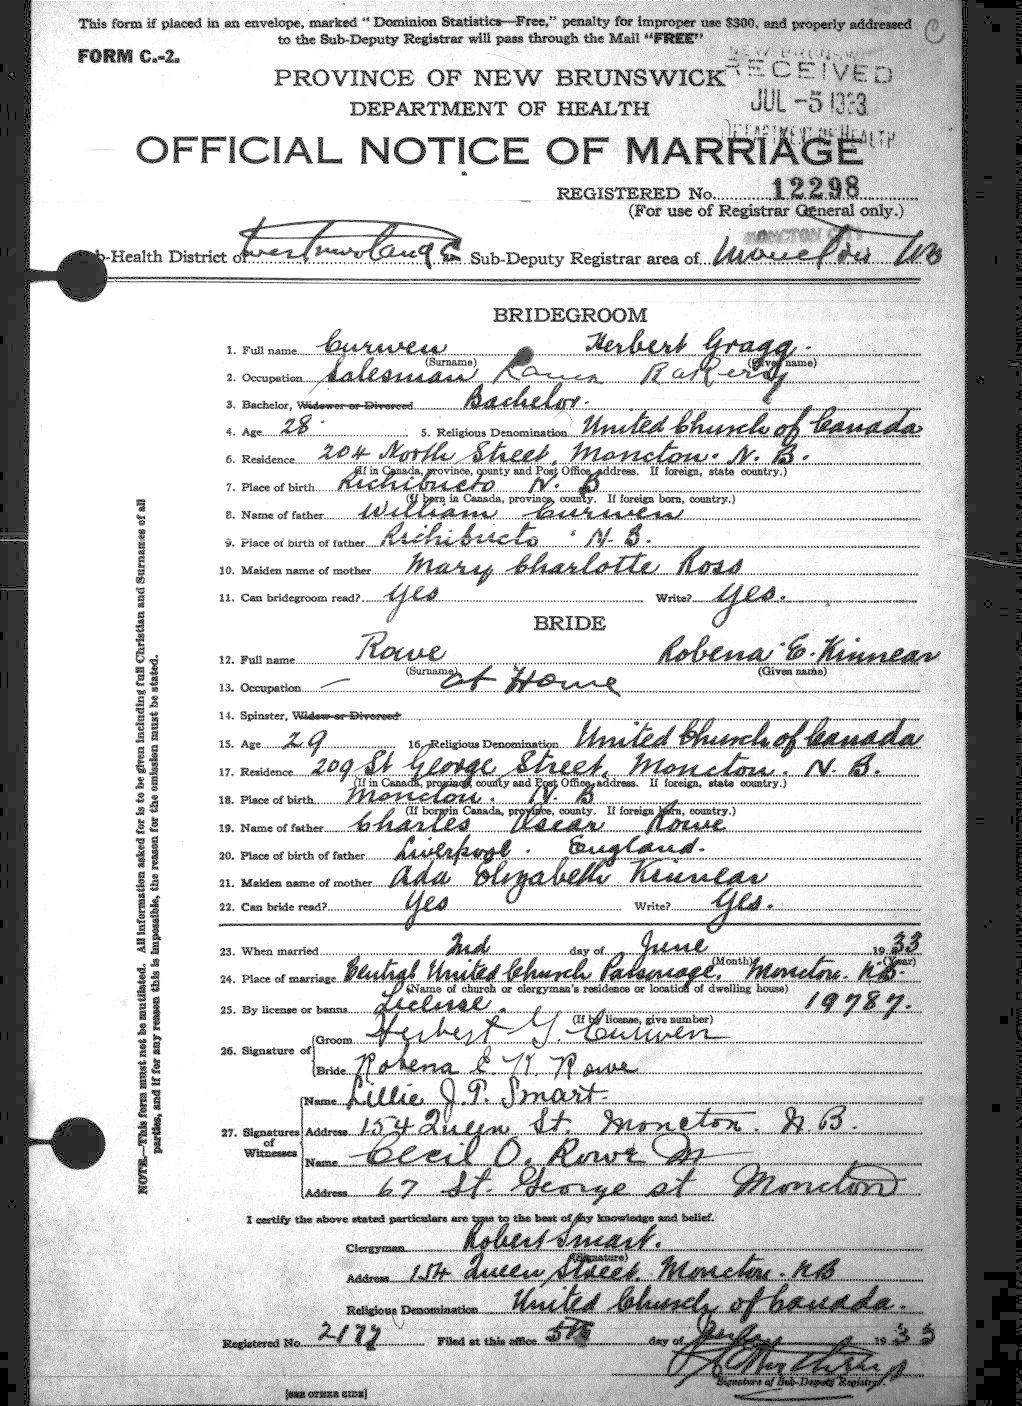 This form if placed in an envelope, marked "Dominion Statistics—Free," penalty for improper use $300, and properly addressed
to the Sub-Deputy Registrar will pass through the Mail "FREE"
FORM C.-2.
PROVINCE OF NEW BRUNSWICK
RECEIVED
DEPARTMENT OF HEALTH
JUL -5 1933
DEPARTMENT OF HEALTH
OFFICIAL NOTICE OF MARRIAGE
REGISTERED No. 12298
(For use of Registrar General only.)
MONCTON CITY
b-Health District of Westmorland Co Sub-Deputy Registrar area of Moncton NB
BRIDEGROOM
1. Full name Curwen Herbert Gragg.
(Surname) (Given name)
2. Occupation Salesman Bakery
3. Bachelor, Widower or Divorced Bachelor.
4. Age 28 5. Religious Denomination United Church of Canada
6. Residence 204 North Street, Moncton. N. B.
(If in Canada, province, county and Post Office address. If foreign, state country.)
7. Place of birth Richibucto N. B
(If born in Canada, province, county. If foreign born, country.)
8. Name of father William Curwen
9. Place of birth of father Richibucto N. B.
10. Maiden name of mother Mary Charlotte Ross
11. Can bridegroom read? Yes Write? Yes.
BRIDE
12. Full name Rowe Robena E. Kinnear
(Surname) (Given name)
13. Occupation — at Home
14. Spinster, Widow or Divorced
15. Age 29 16. Religious Denomination United Church of Canada
17. Residence 209 St George Street, Moncton. N. B.
(If in Canada, province, county and Post Office address. If foreign, state country.)
18. Place of birth Moncton. N. B
(If born in Canada, province, county. If foreign born, country.)
19. Name of father Charles Oscar Rowe
20. Place of birth of father Liverpool. England.
21. Maiden name of mother Ada Elizabeth Kinnear
22. Can bride read? Yes Write? Yes.
23. When married 2nd day of June 1933
(Month) (Year)
24. Place of marriage Central United Church Parsonage, Moncton. N.B.
(Name of church or clergyman's residence or location of dwelling house)
25. By license or banns License. 19787.
(If by license, give number)
26. Signature of Groom Herbert G. Curwen
Bride Robena E. K. Rowe
27. Signatures of Witnesses
Name Lillie J. P. Smart
Address 154 Queen St. Moncton. N. B.
Name Cecil O. Rowe
Address 67 St. George st Moncton
I certify the above stated particulars are true to the best of my knowledge and belief.
Clergyman Robert Smart.
(Signature)
Address 154 Queen Street, Moncton. NB
Religious Denomination United Church of Canada.
Registered No. 2177 Filed at this office 5th day of July 1933
Signature of Sub-Deputy Registrar
[SEE OTHER SIDE]
NOTE.—This form must not be mutilated. All information asked for is to be given including full Christian and Surnames of all
parties, and if for any reason this is impossible, the reason for the omission must be stated.